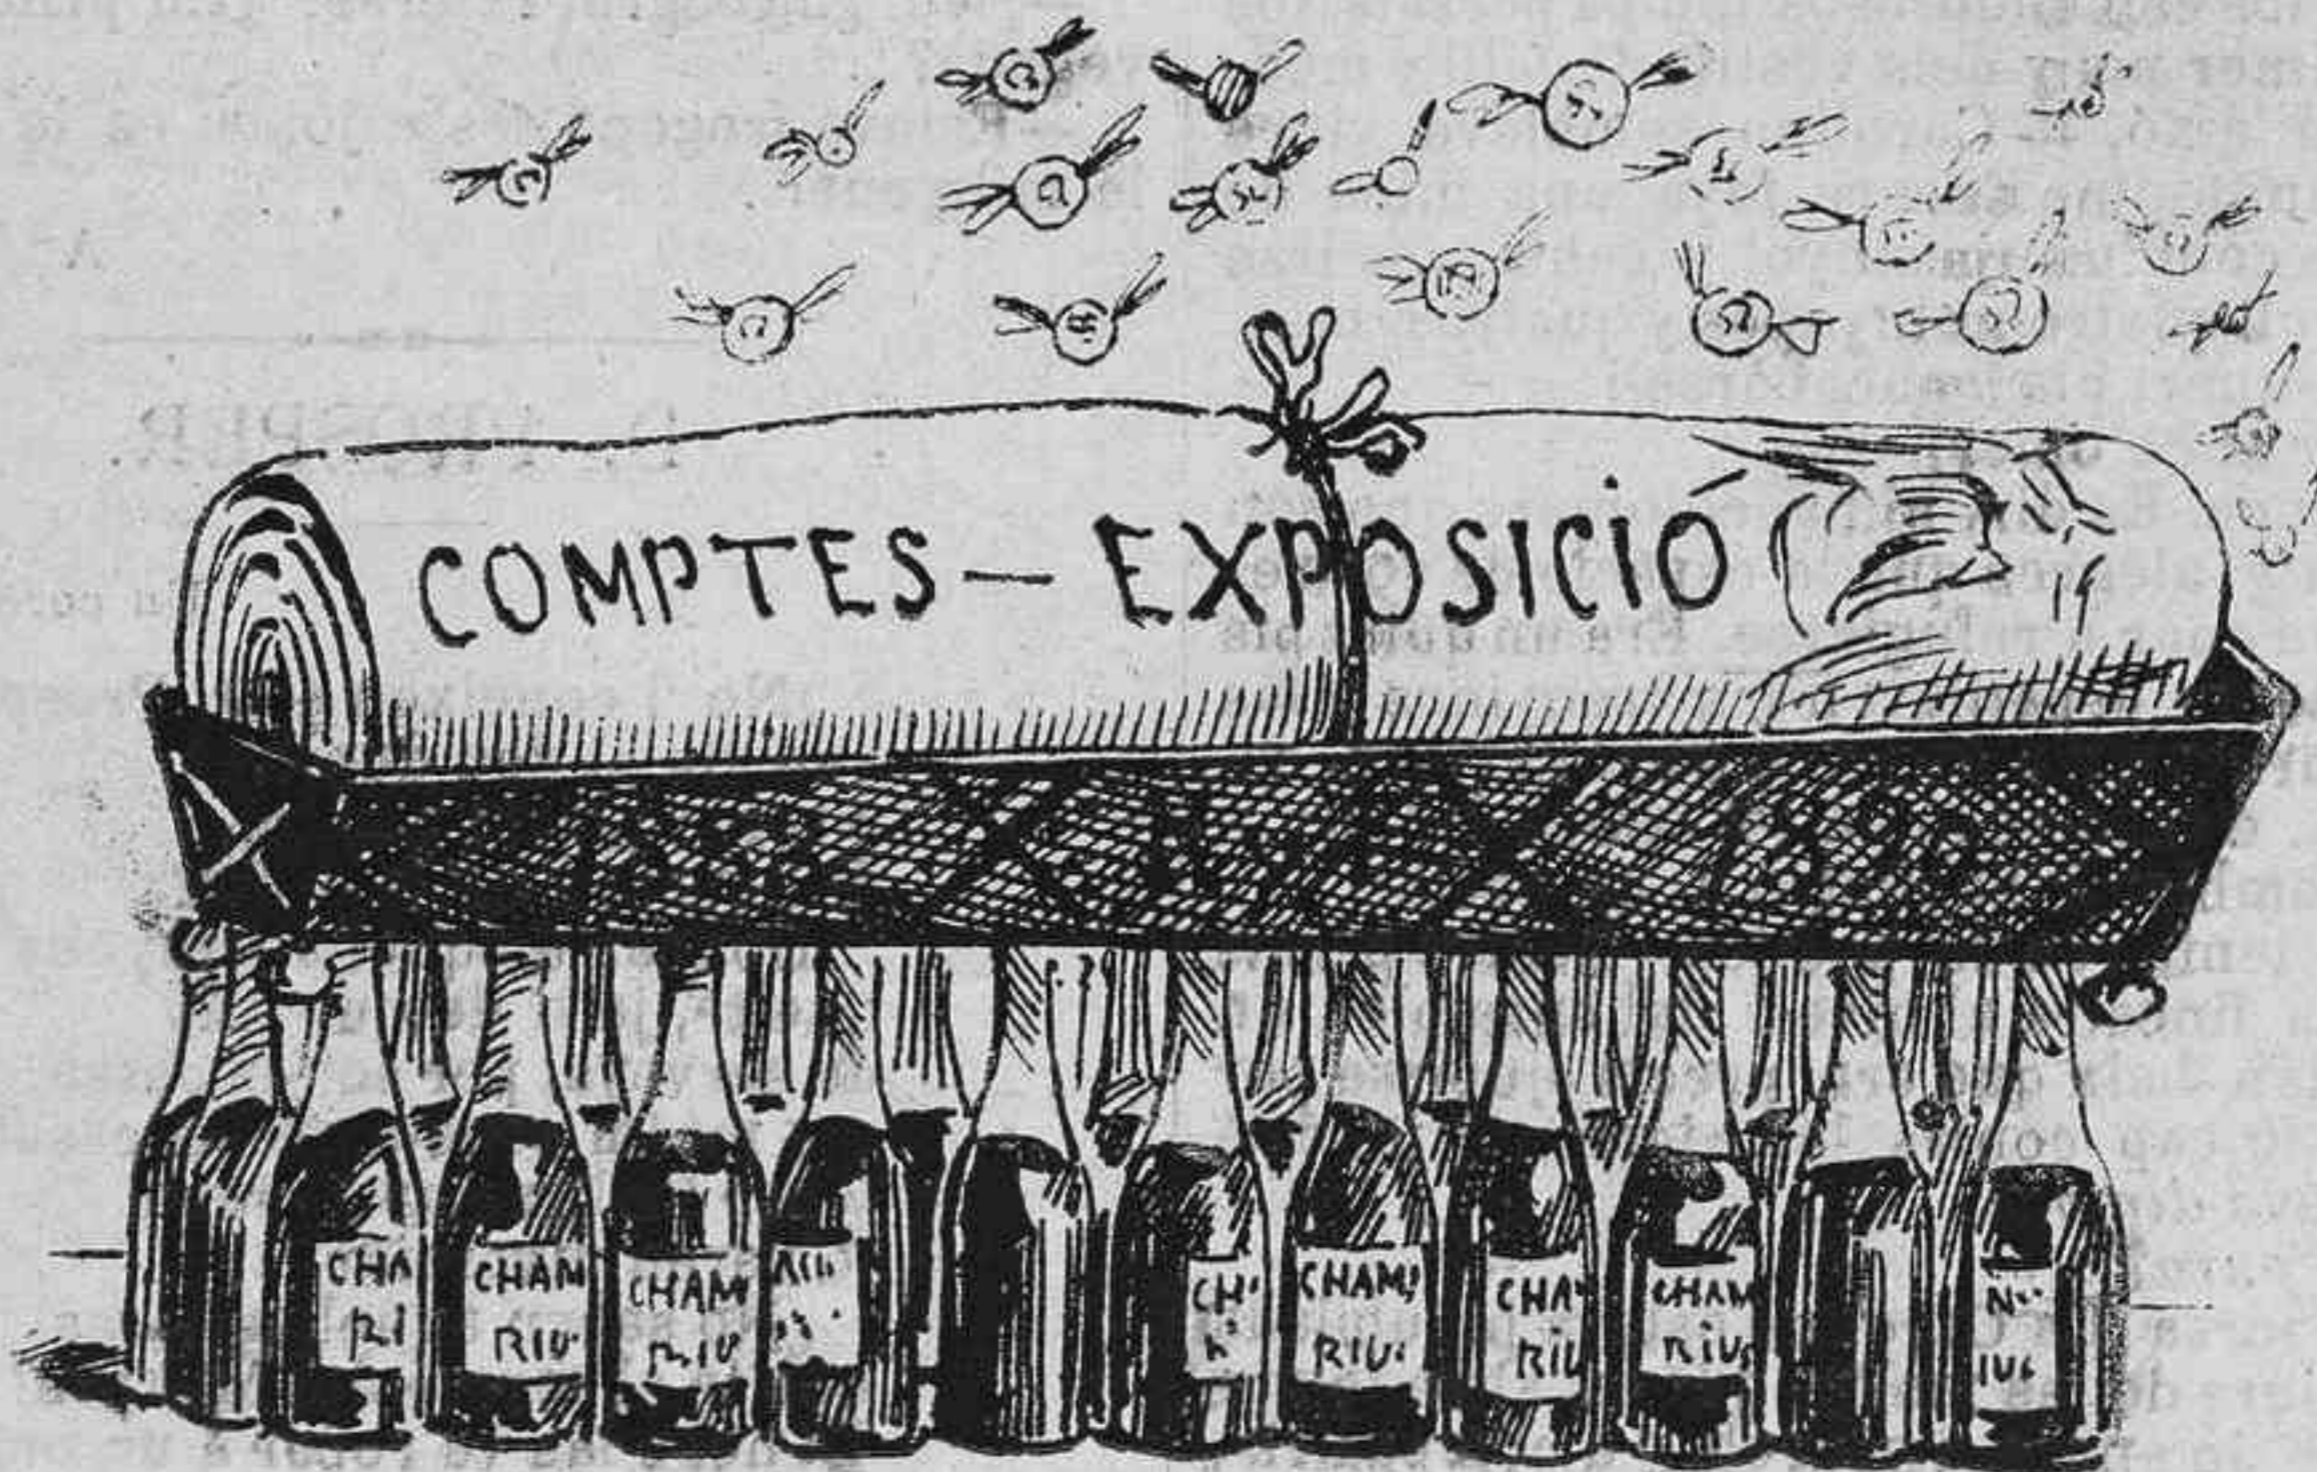 COMPTES — EXPOSICIÓ
1890
CHA
RI
CHAM
RIU
CHAM
RIU
CH
CHAM
RIU
CHA
RIU
CHAM
RIUS
IUS